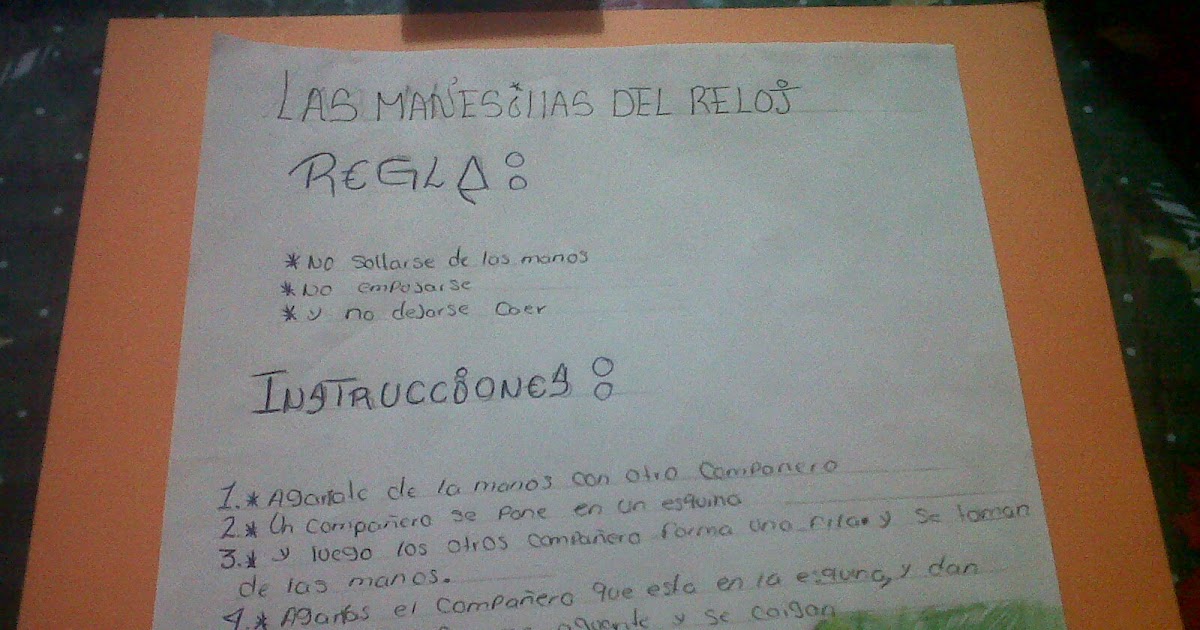 LAS MANESillAS DEL RELOJ
REGLA:
* NO sollarse de las manos
* NO empujarse
* y no dejarse caer
INSTRUCCiONES:
1.* Agartalc de la manos con otro compañero
2.* Un compañero se pone en un esquina
3.* y luego los otros compañero forma una fila y se toman
de las manos.
4.* Agartas el compañero que esta en la esquina, y dan
aguante y se caigan